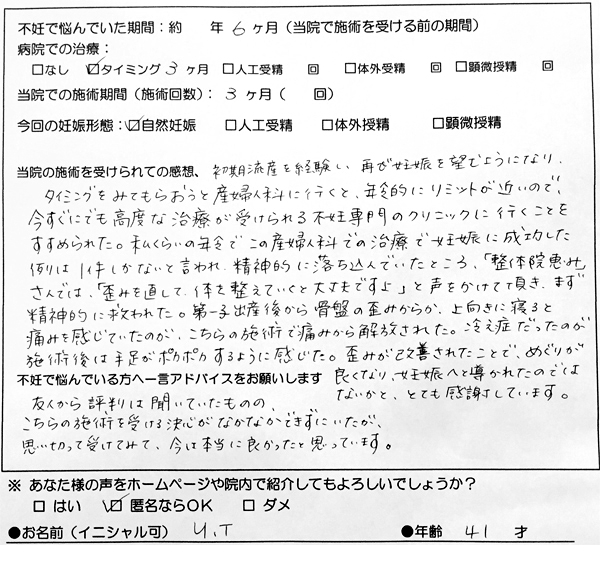 不妊で悩んでいた期間:約 年 6ヶ月(当院で施術を受ける前の期間)
病院での治療:
□なし ☑タイミング3ヶ月 □人工受精 回 □体外受精 回 □顕微授精 回
当院での施術期間(施術回数):3ヶ月( 回)
今回の妊娠形態:☑自然妊娠 □人工受精 □体外受精 □顕微授精
当院の施術を受けられての感想、初期流産を経験し、再び妊娠を望むようになり、
タイミングをみてもらおうと産婦人科に行くと、年令的にリミットが近いので、
今すぐにでも高度な治療が受けられる不妊専門のクリニックに行くことを
すすめられた。私くらいの年令でこの産婦人科での治療で妊娠に成功した
例は1件しかないと言われ、精神的に落ち込んでいたところ、「整体院恵み」
さんでは、「歪みを直して、体を整えていくと大丈夫ですよ」と声をかけて頂き、まず
精神的に救われた。第一子出産後から骨盤の歪みからか、上向きに寝ると
痛みを感じていたのが、こちらの施術で痛みから解放された。冷え症だったのが
施術後は手足がポカポカするように感じた。歪みが改善されたことで、めぐりが
良くなり、妊娠へと導かれたのでは
ないかと、とても感謝しています。
不妊で悩んでいる方へ一言アドバイスをお願いします
友人から評判は聞いていたものの、
こちらの施術を受ける決心がなかなかできずにいたが、
思い切って受けてみて、今は本当に良かったと思っています。
※ あなた様の声をホームページや院内で紹介してもよろしいでしょうか?
□ はい ☑ 匿名ならOK □ ダメ
●お名前(イニシャル可) Y.T ●年齢 41 才